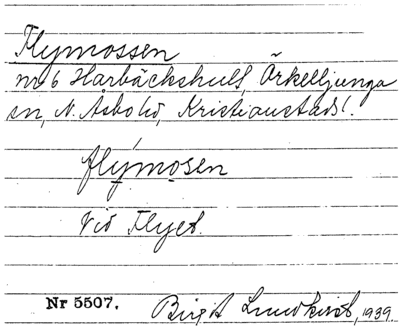 Flymossen
nr 6 Harbäckshult, Örkelljunga
sn, N. Åsbo hd, Kristianstads l.
flýmosen
Vid Flyet.
Nr 5507. Birgit Lundkvist, 1939.